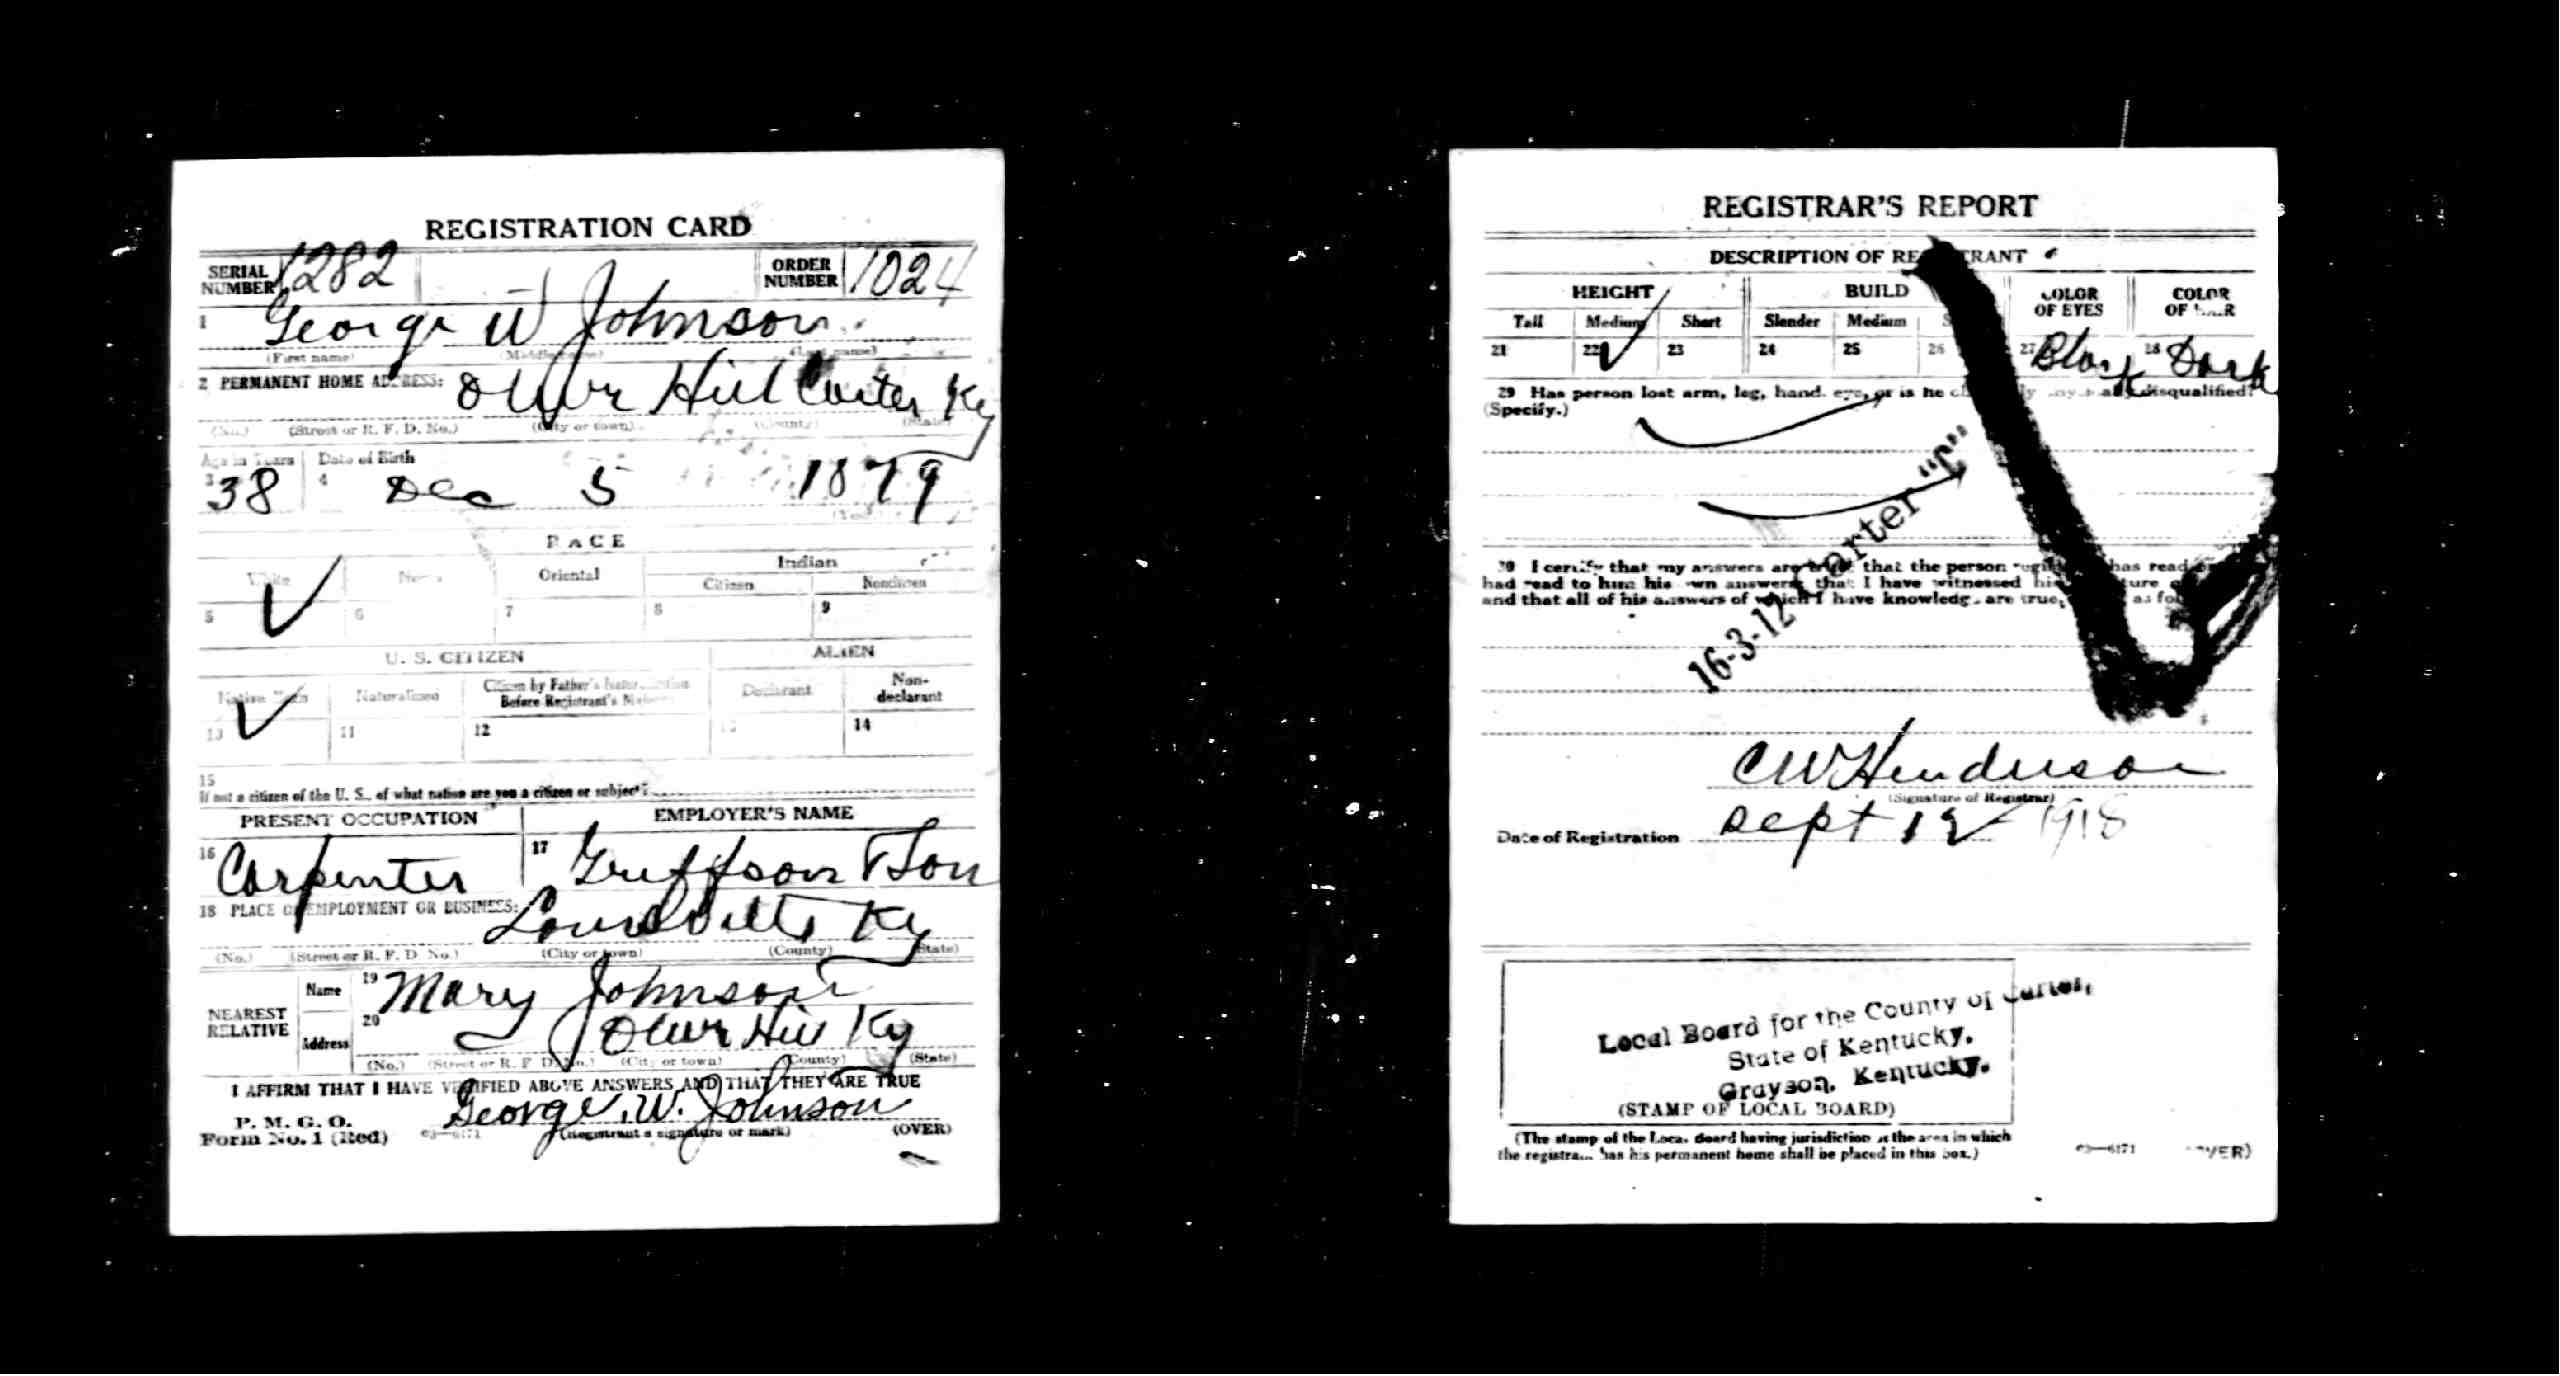 REGISTRATION CARD
SERIAL NUMBER 1282 ORDER NUMBER 1024
1 George W Johnson
(First name) (Middle name) (Last name)
2 PERMANENT HOME ADDRESS: Oliver Hill Carter Ky
(No.) (Street or R. F. D. No.) (City or town) (County) (State)
Age in Years Date of Birth
3 38 4 Dec 5 1879
(Year)
RACE
White Oriental Indian
Citizen Noncitizen
5 6 7 8 9
U. S. CITIZEN ALIEN
Native Born Naturalized Citizen by Father's Naturalization Before Registrant's Majority Declarant Non-declarant
10 11 12 13 14
15
If not a citizen of the U. S., of what nation are you a citizen or subject?
PRESENT OCCUPATION EMPLOYER'S NAME
16 Carpenter 17 & Son
18 PLACE OF EMPLOYMENT OR BUSINESS: Louisville Ky
(No.) (Street or R. F. D. No.) (City or town) (County) (State)
NEAREST RELATIVE Name 19 Mary Johnson
Address 20 Oliver Hill Ky
(No.) (Street or R. F. D. No.) (City or town) (County) (State)
I AFFIRM THAT I HAVE VERIFIED ABOVE ANSWERS AND THAT THEY ARE TRUE
P. M. G. O.
Form No. 1 (Red) 03—6171 George W. Johnson
(Registrant's signature or mark) (OVER)
REGISTRAR'S REPORT
DESCRIPTION OF REGISTRANT
HEIGHT BUILD COLOR OF EYES COLOR OF HAIR
Tall Medium Short Slender Medium
21 22 23 24 25 26 27 Black 28 Dark
29 Has person lost arm, leg, hand, eye, or is he obviously physically disqualified?
(Specify.)
16-3-12 Carter "C"
30 I certify that my answers are true; that the person registered has read or
had read to him his own answers; that I have witnessed his signature or
and that all of his answers of which I have knowledge are true, as
C W Henderson
(Signature of Registrar)
Date of Registration Sept 12 1918
Local Board for the County of Carter,
State of Kentucky,
Grayson, Kentucky.
(STAMP OF LOCAL BOARD)
(The stamp of the Local Board having jurisdiction of the area in which
the registrant has his permanent home shall be placed in this box.)
03—6171 (OVER)